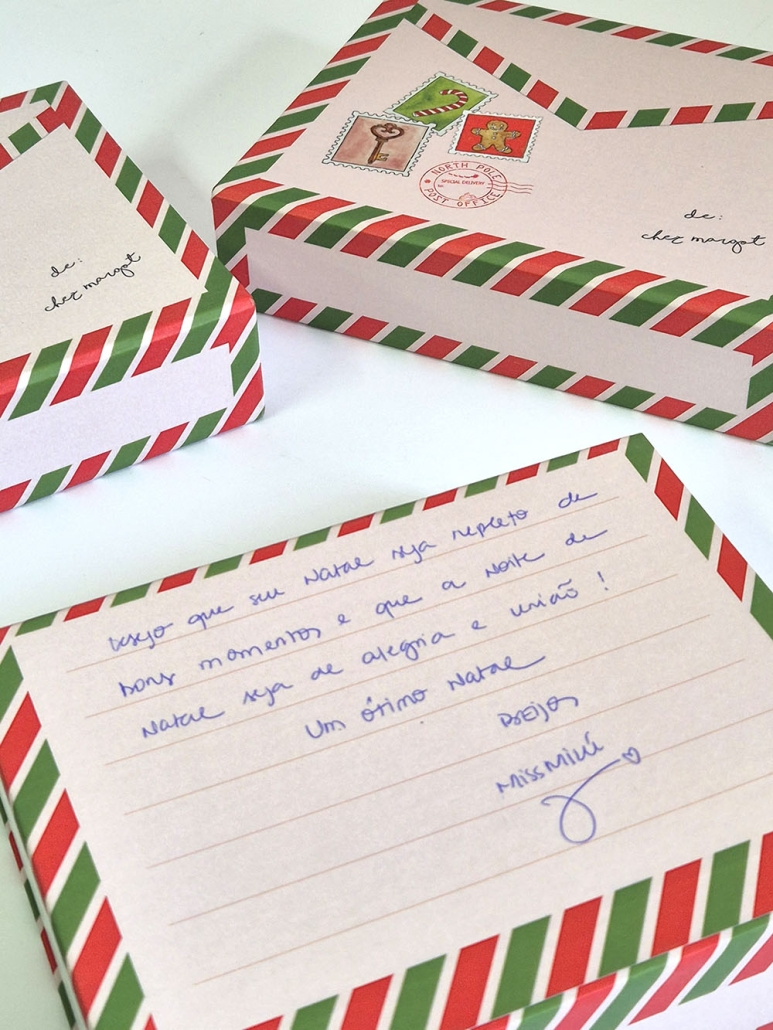 de:
chez margot
NORTH POLE
SPECIAL DELIVERY
POST OFFICE
de:
chez margot
Desejo que seu Natal seja repleto de
bons momentos e que a Noite de
Natal seja de alegria e união!
Um ótimo Natal
Beijos